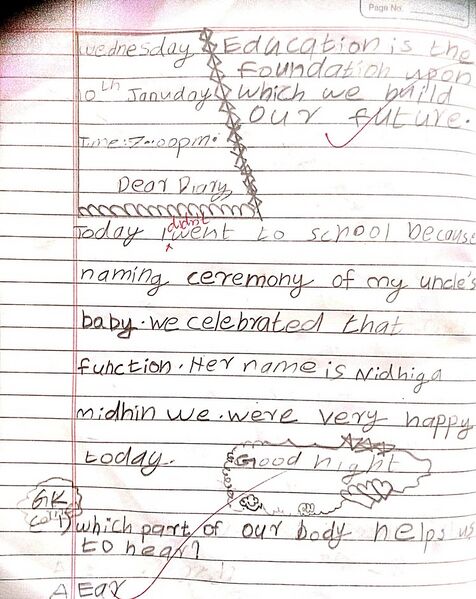 Page No.
Wednesday
Education is the
foundation upon
10th Januday
which we build
our future.
Time:7:00pm.
Dear Diary,
didnt
Today I went to school because
naming ceremony of my uncle's
baby. we celebrated that
function. Her name is Nidhiga
midhin we. were very happy
today.
Good night
GK
1) which part of our body helps us
to hear?
A Ear